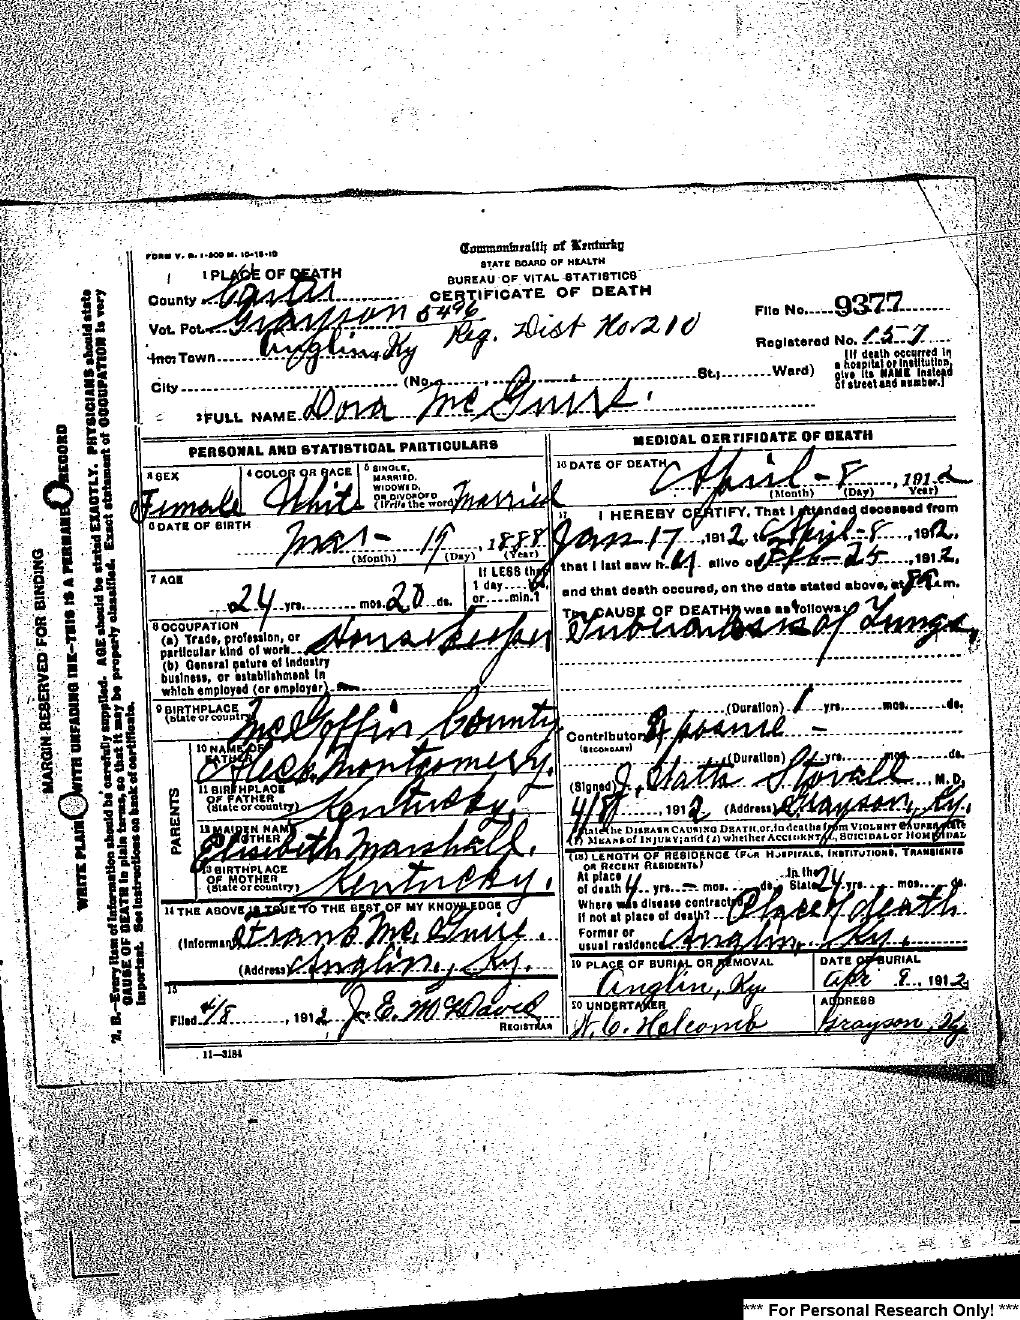 FORM V. S. 1-500 M. 10-15-10
Commonwealth of Kentucky
STATE BOARD OF HEALTH
BUREAU OF VITAL STATISTICS
CERTIFICATE OF DEATH
1 PLACE OF DEATH
County Carter
Vot. Pct. Grayson 5496
Reg. Dist No. 210
File No. 9377
Inc. Town Anglin, Ky
Registered No. 157
City (No. St.; Ward)
[If death occurred in
a hospital or institution,
give its NAME instead
of street and number.]
2 FULL NAME Dora McGuire.
PERSONAL AND STATISTICAL PARTICULARS
3 SEX
Female
4 COLOR OR RACE
White
5 SINGLE,
MARRIED,
WIDOWED,
OR DIVORCED
(Write the word) Married
6 DATE OF BIRTH
Mar - 19, 1888
(Month) (Day) (Year)
7 AGE
24 yrs. mos. 20 ds.
If LESS than
1 day hrs.
or min.?
8 OCCUPATION
(a) Trade, profession, or
particular kind of work House Keeper
(b) General nature of industry
business, or establishment in
which employed (or employer)
9 BIRTHPLACE
(State or country) McGoffin County
PARENTS
10 NAME OF
FATHER Aleck Montgomery.
11 BIRTHPLACE
OF FATHER
(State or country) Kentucky.
12 MAIDEN NAME
OF MOTHER Elisibeth Marshall.
13 BIRTHPLACE
OF MOTHER
(State or country) Kentucky.
14 THE ABOVE IS TRUE TO THE BEST OF MY KNOWLEDGE
(Informant) Frank McGuire.
(Address) Anglin, Ky.
15
Filed 4/8, 1912 J. E. McDavid
REGISTRAR
11-3184
MEDICAL CERTIFICATE OF DEATH
16 DATE OF DEATH
April - 8, 1912
(Month) (Day) Year)
17 I HEREBY CERTIFY, That I attended deceased from
Jan 17, 1912, to April - 8, 1912,
that I last saw her alive on Feb - 25, 1912,
and that death occured, on the date stated above, at 8 a.m.
The CAUSE OF DEATH was as follows:
Tuberculosis of Lungs,
(Duration) 1 yrs. mos. ds.
Contributory
(SECONDARY)
(Duration) yrs. mos. ds.
(Signed) J. Watts Stovall M. D.
4/8, 1912 (Address) Grayson, Ky.
State the DISEASE CAUSING DEATH, or, in deaths from VIOLENT CAUSES, state
(1) MEANS OF INJURY; and (2) whether ACCIDENTAL, SUICIDAL OR HOMICIDAL
(18) LENGTH OF RESIDENCE (FOR HOSPITALS, INSTITUTIONS, TRANSIENTS
OR RECENT RESIDENTS)
At place In the
of death 4 yrs. - mos. ds. State 24 yrs. mos. ds.
Where was disease contracted
if not at place of death? Place of death
Former or
usual residence Anglin, Ky.
19 PLACE OF BURIAL OR REMOVAL
Anglin, Ky.
DATE OF BURIAL
Apr 9, 1912
20 UNDERTAKER
N. C. Holcomb
ADDRESS
Grayson, Ky
MARGIN RESERVED FOR BINDING
WRITE PLAINLY WITH UNFADING INK—THIS IS A PERMANENT RECORD
N. B.—Every item of information should be carefully supplied. AGE should be stated EXACTLY. PHYSICIANS should state
CAUSE OF DEATH in plain terms, so that it may be properly classified. Exact statement of OCCUPATION is very
important. See instructions on back of certificate.
*** For Personal Research Only! ***